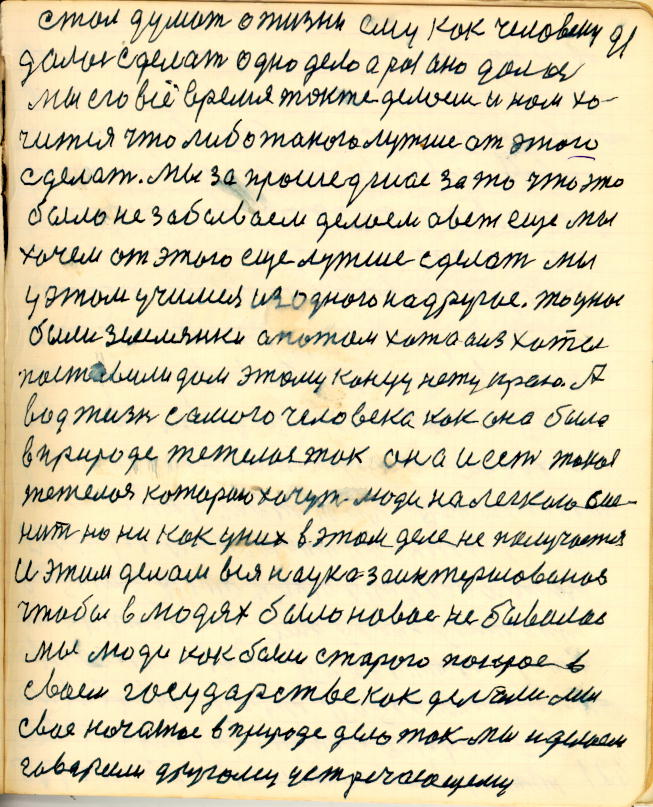 стал думат о жизни ему как человеку д
далос сделат одно дело а раз ано далос
мы его всё время токже делаем и нам хо-
чится что либо такого лутше от этого
сделат. мы за прошедшае за то что это
было не забываем делаем а вот еще мы
хочем от этого еще лутше сделат мы
у этом учимся из одного на другое. то у нас
были землянки а потом хота из хоты
поставили дом этому концу нету краю. А
вод жизн самого человека как она была
в природе тежелая так она и ест такая
тежелая которою хочут люди на легкого сме-
нит но ни как у них в этом деле не получается
И этим делам вся наука заинтерисованоя
чтобы в людях было новае не бывалае
мы люди как были старого покроя в
своем государстве как делали мы
свае начатое в природе дело так мы и делаем
говарили другому устречающему